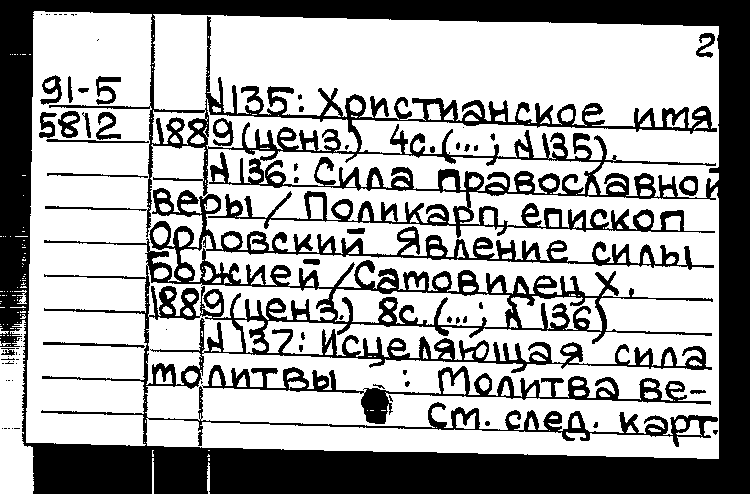 2
91-5 N135: Христианское имя
5812 1889 (ценз.). 4с. (...; N135).
N136: Сила православной
веры / Поликарп, епископ
Орловский Явление силы
Божией / Самовилец Х.
1889 (ценз.) 8с. (...; N136)
N137: Исцеляющая сила
молитвы : Молитва ве-
См. след. карт.